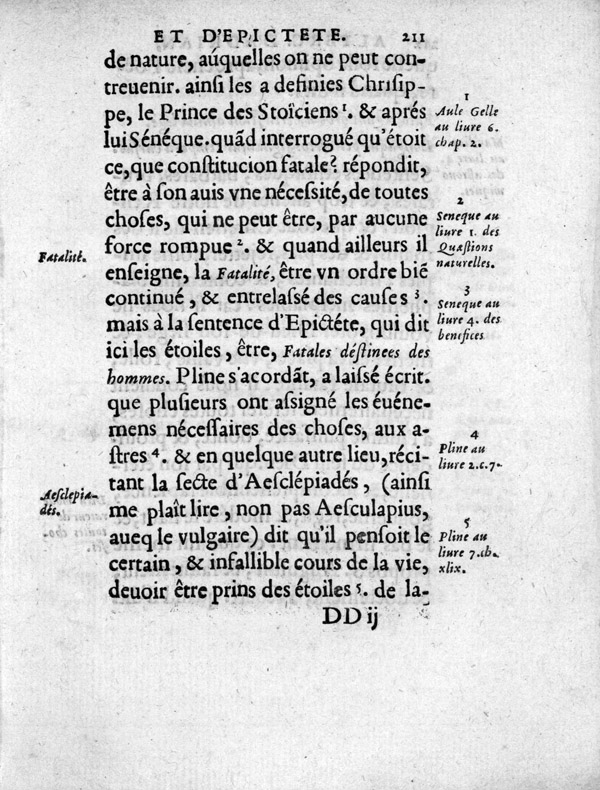 ET D'EPICTETE. 211
de nature, aúquelles on ne peut con-
treuenir. ainſi les a definies Chriſip-
pe, le Prince des Stoïciens¹. & aprés
lui Sénéque. quãd interrogué qu'étoit
ce, que conſtitucion fatale? répondit,
être à ſon auis vne néceſſité, de toutes
choſes, qui ne peut être, par aucune
force rompue². & quand ailleurs il
enſeigne, la Fatalité, être vn ordre biẽ
continué, & entrelaſſé des cauſes³.
mais à la ſentence d'Epictéte, qui dit
ici les étoiles, être, Fatales déſtinees des
hommes. Pline s'acordãt, a laiſſé écrit.
que pluſieurs ont aſſigné les éuéne-
mens néceſſaires des choſes, aux a-
ſtres⁴. & en quelque autre lieu, réci-
tant la ſecte d'Aeſclépiadés, (ainſi
me plaît lire, non pas Aeſculapius,
aueq le vulgaire) dit qu'il penſoit le
certain, & infallible cours de la vie,
deuoir être prins des étoiles⁵. de la-
DD ij
Fatalité.
Aeſclepia-
dés.
1
Aule Gelle
au liure 6.
chap. 2.
2
Seneque au
liure 1. des
Quæſtions
naturelles.
3
Seneque au
liure 4. des
benefices
4
Pline au
liure 2. c. 7.
5
Pline au
liure 7. ch.
xlix.